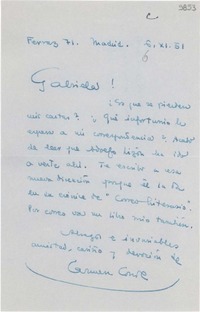 5853
Ferraz 71. Madrid. 2.XI.51
6
Gabriela!
¿Es que se pierden
mis cartas? ¿Qué infortunio le
espera a mi correspondencia? Acabo
de leer que Adolfo
a verte allí. Te escribo a esa
nueva dirección porque él la da
en su crónica de "Correo Literario".
Por correo va un libro mío también.
Abrazos e invariables
amistad, cariño y devoción de
Carmen Conde